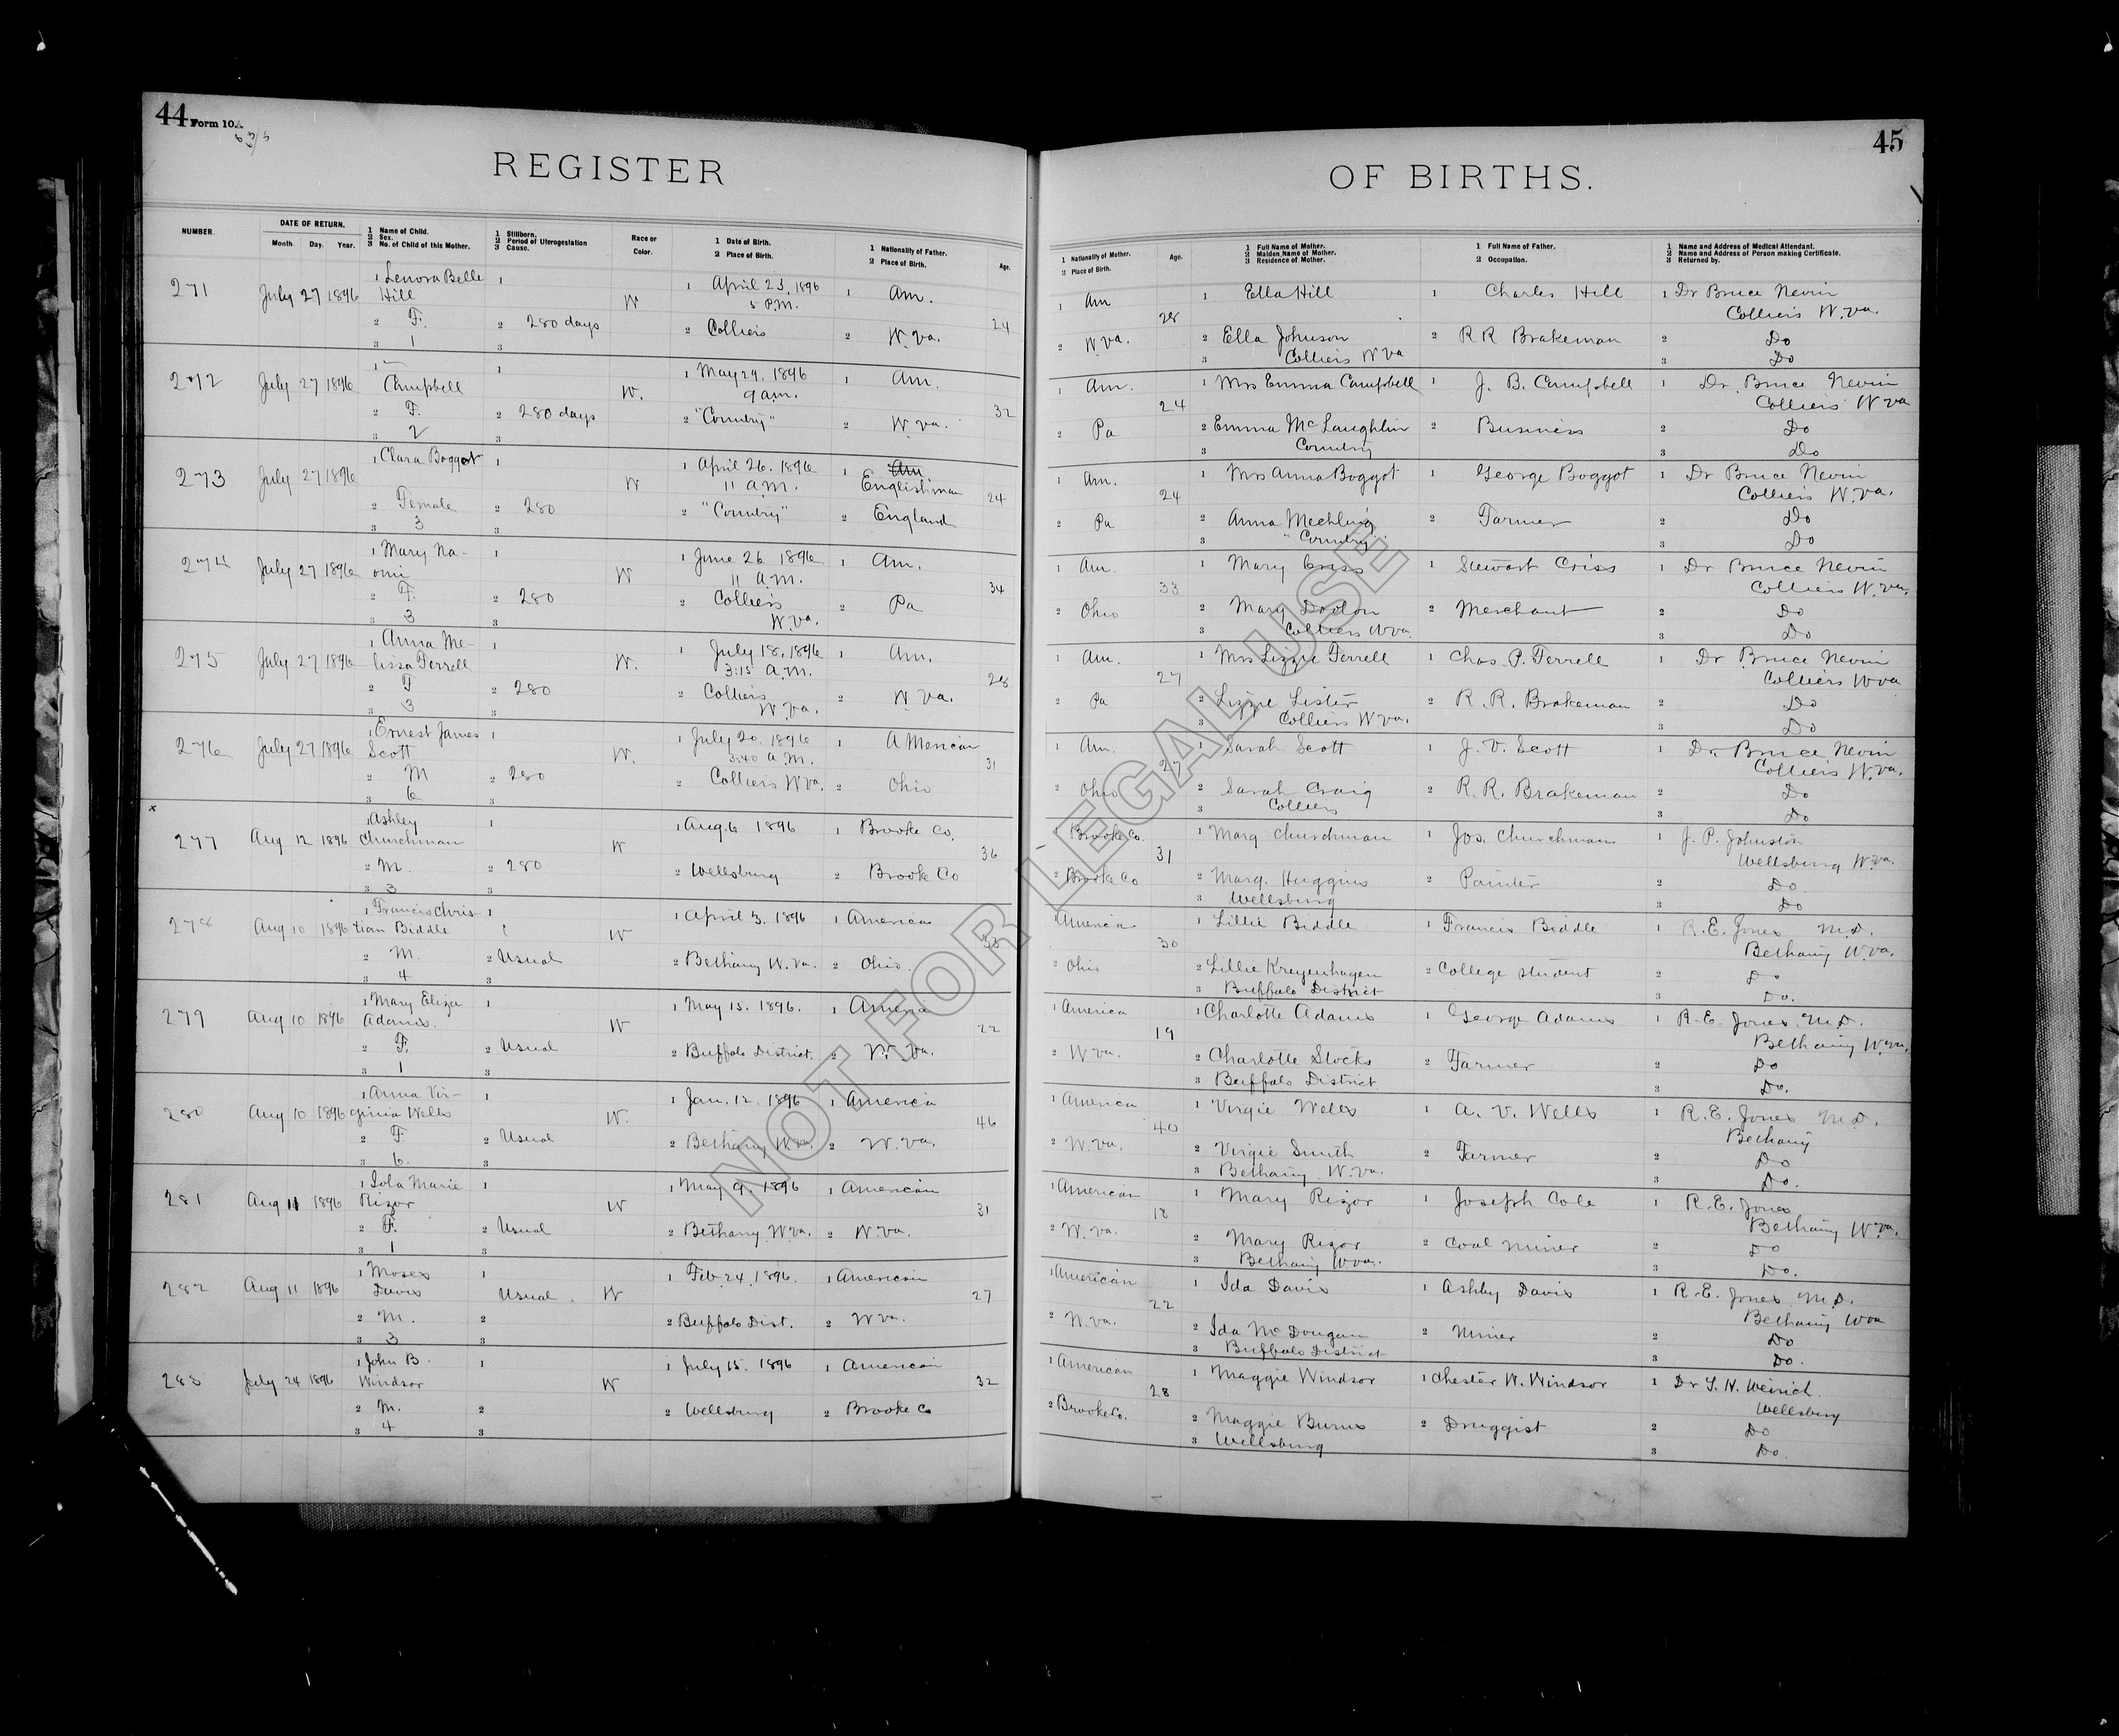 44 Form 10.
REGISTER
NUMBER.
DATE OF RETURN.
Month. Day. Year.
1 Name of Child.
2 Sex.
3 No. of Child of this Mother.
1 Stillborn.
2 Period of Uterogestation
3 Cause.
Race or
Color.
1 Date of Birth.
2 Place of Birth.
1 Nationality of Father.
2 Place of Birth.
Age.
271 July 27 1896 1 Lenora Belle 1 W 1 April 23, 1896 1 Am. 24
Hill 5 P.M.
2 F. 2 280 days 2 Colliers 2 W.va.
3 1 3
272 July 27 1896 1 — 1 W. 1 May 29. 1896 1 Am. 32
Campbell 9 a.m.
2 F. 2 280 days 2 "Country" 2 W.va.
3 2 3
273 July 27 1896 1 Clara Boggot 1 W 1 April 26. 1896 1 Am 24
11 A.M. Englishman
2 Female 2 280 2 "Country" 2 England
3 3 3
274 July 27 1896 1 Mary Na- 1 W 1 June 26 1896 1 Am. 34
omi 11 A.M.
2 F. 2 280 2 Colliers 2 Pa
3 3 3 W.va.
275 July 27 1896 1 Anna Me- 1 W. 1 July 18, 1896 1 Am. 28
lissa Ferrell 3:15 A.M.
2 F 2 280 2 Colliers 2 W.va.
3 3 3 W.va.
276 July 27 1896 1 Ernest James 1 W. 1 July 20, 1896 1 American 31
Scott 3:40 A.M.
2 M 2 280 2 Colliers W va. 2 Ohio
3 6 3
x
277 Aug 12 1896 1 Ashley 1 W 1 Aug. 6 1896 1 Brooke Co. 36
Churchman
2 M. 2 280 2 Wellsburg 2 Brooke Co
3 3 3
278 Aug 10 1896 1 Francis Chris- 1 W 1 April 3. 1896 1 America
tian Biddle
2 M. 2 Usual 2 Bethany W.va. 2 Ohio.
3 4 3
279 Aug 10 1896 1 Mary Eliza 1 W 1 May 15. 1896. 1 America 22
Adams.
2 F. 2 Usual 2 Buffalo District. 2 W.va.
3 1 3
280 Aug 10 1896 1 Anna Vir- 1 W. 1 Jan. 12. 1896 1 America 46
ginia Wells
2 F. 2 Usual 2 Bethany W.va. 2 W.va.
3 6. 3
281 Aug 11 1896 1 Iola Marie 1 W 1 May 9. 1896 1 American 31
Rizor
2 F. 2 Usual 2 Bethany W.va. 2 W.va.
3 1 3
282 Aug 11 1896 1 Moses 1 Usual. W 1 Feb. 24. 1896. 1 American 27
Davis
2 M. 2 2 Buffalo Dist. 2 W va.
3 3 3
283 July 24 1896 1 John B. 1 W 1 July 15. 1896 1 American 32
Windsor
2 M. 2 2 Wellsburg 2 Brooke Co
3 4 3
45
OF BIRTHS.
1 Nationality of Mother.
2 Place of Birth.
Age.
1 Full Name of Mother.
2 Maiden Name of Mother.
3 Residence of Mother.
1 Full Name of Father.
2 Occupation.
1 Name and Address of Medical Attendant.
2 Name and Address of Person making Certificate.
3 Returned by.
1 Am 28 1 Ella Hill 1 Charles Hill 1 Dr Bruce Nevin
Colliers W.va.
2 W va. 2 Ella Johnson 2 R R Brakeman 2 Do
3 Colliers W va 3 Do
1 Am. 24 1 Mrs Emma Campbell 1 J. B. Campbell 1 Dr. Bruce Nevin
Colliers W va
2 Pa 2 Emma McLaughlin 2 Business 2 Do
3 Country 3 Do
1 Am. 24 1 Mrs Anna Boggot 1 George Boggot 1 Dr Bruce Nevin
Colliers W.va.
2 Pa 2 Anna Mechling 2 Farmer 2 Do
3 "Country" 3 Do
1 Am. 33 1 Mary Criss 1 Stewart Criss 1 Dr Bruce Nevin
Colliers W.va.
2 Ohio 2 Mary 2 Merchant 2 Do
3 Colliers W va. 3 Do
1 Am. 27 1 Mrs Lizzie Ferrell 1 Chas. P. Ferrell 1 Dr Bruce Nevin
Colliers W va
2 Pa 2 Lizzie Lister 2 R. R. Brakeman 2 Do
3 Colliers W.va. 3 Do
1 Am. 27 1 Sarah Scott 1 J. V. Scott 1 Dr Bruce Nevin
Colliers W.va.
2 Ohio 2 Sarah Craig 2 R. R. Brakeman 2 Do
3 Colliers 3 Do
1 Brooke Co. 31 1 Marg Churchman 1 Jos. Churchman 1 J. P. Johnston
Wellsburg W.va.
2 Brooke Co 2 Marg. Huggins 2 Painter 2 Do.
3 Wellsburg 3 Do
America 30 1 Lillie Biddle 1 Francis Biddle 1 R. E. Jones M.D.
Bethany W.va.
2 Ohio 2 Lillie Kreyenhagen 2 College student 2 Do
3 Buffalo District 3 Do.
1 America 19 1 Charlotte Adams 1 George Adams 1 R. E. Jones. M.D.
Bethany W.va.
2 W va. 2 Charlotte Stocks 2 Farmer 2 Do
3 Buffalo District 3 Do.
1 America 40 1 Virgie Wells 1 A. V. Wells 1 R. E. Jones M.D.
Bethany
2 W.va. 2 Virgie Smith 2 Farmer 2 Do
3 Bethany W.va. 3 Do.
1 American 18 1 Mary Rizor 1 Joseph Cole 1 R. E. Jones
Bethany W.va.
2 W.va. 2 Mary Rizor 2 Coal miner 2 Do
3 Bethany W va. 3 Do.
1 American 22 1 Ida Davis 1 Ashby Davis 1 R. E. Jones M.D.
Bethany W va
2 W.va. 2 Ida McDougan 2 Miner 2 Do
3 Buffalo District 3 Do.
1 American 28 1 Maggie Windsor 1 Chester W. Windsor 1 Dr
Wellsburg
2 Brooke Co. 2 Maggie Burns 2 Druggist 2 Do
3 Wellsburg 3 Do.
NOT FOR LEGAL USE